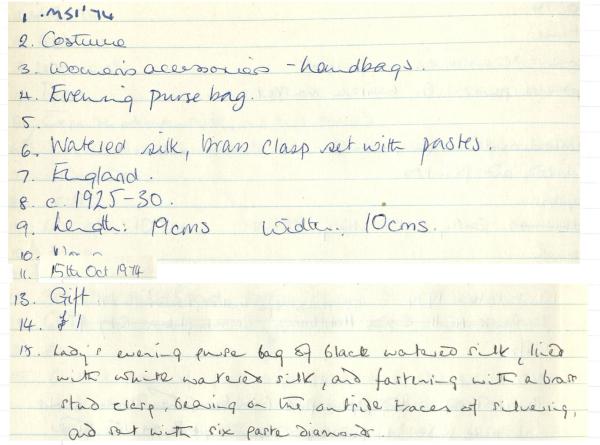 1. MSI '74
2. Costume
3. Women's acessories - handbags.
4. Evening purse bag.
5.
6. Watered silk, brass clasp set with pastes.
7. England.
8. c. 1925-30.
9. Length: 19cms Width: 10cms.
10.
11. 15th Oct 1974
13. Gift
14. £1
15. Lady's evening purse bag of black watered silk, lined
with white watered silk, and fastening with a brass
stud clasp, bearing on the outside traces of silvering,
and set with six paste diamonds.